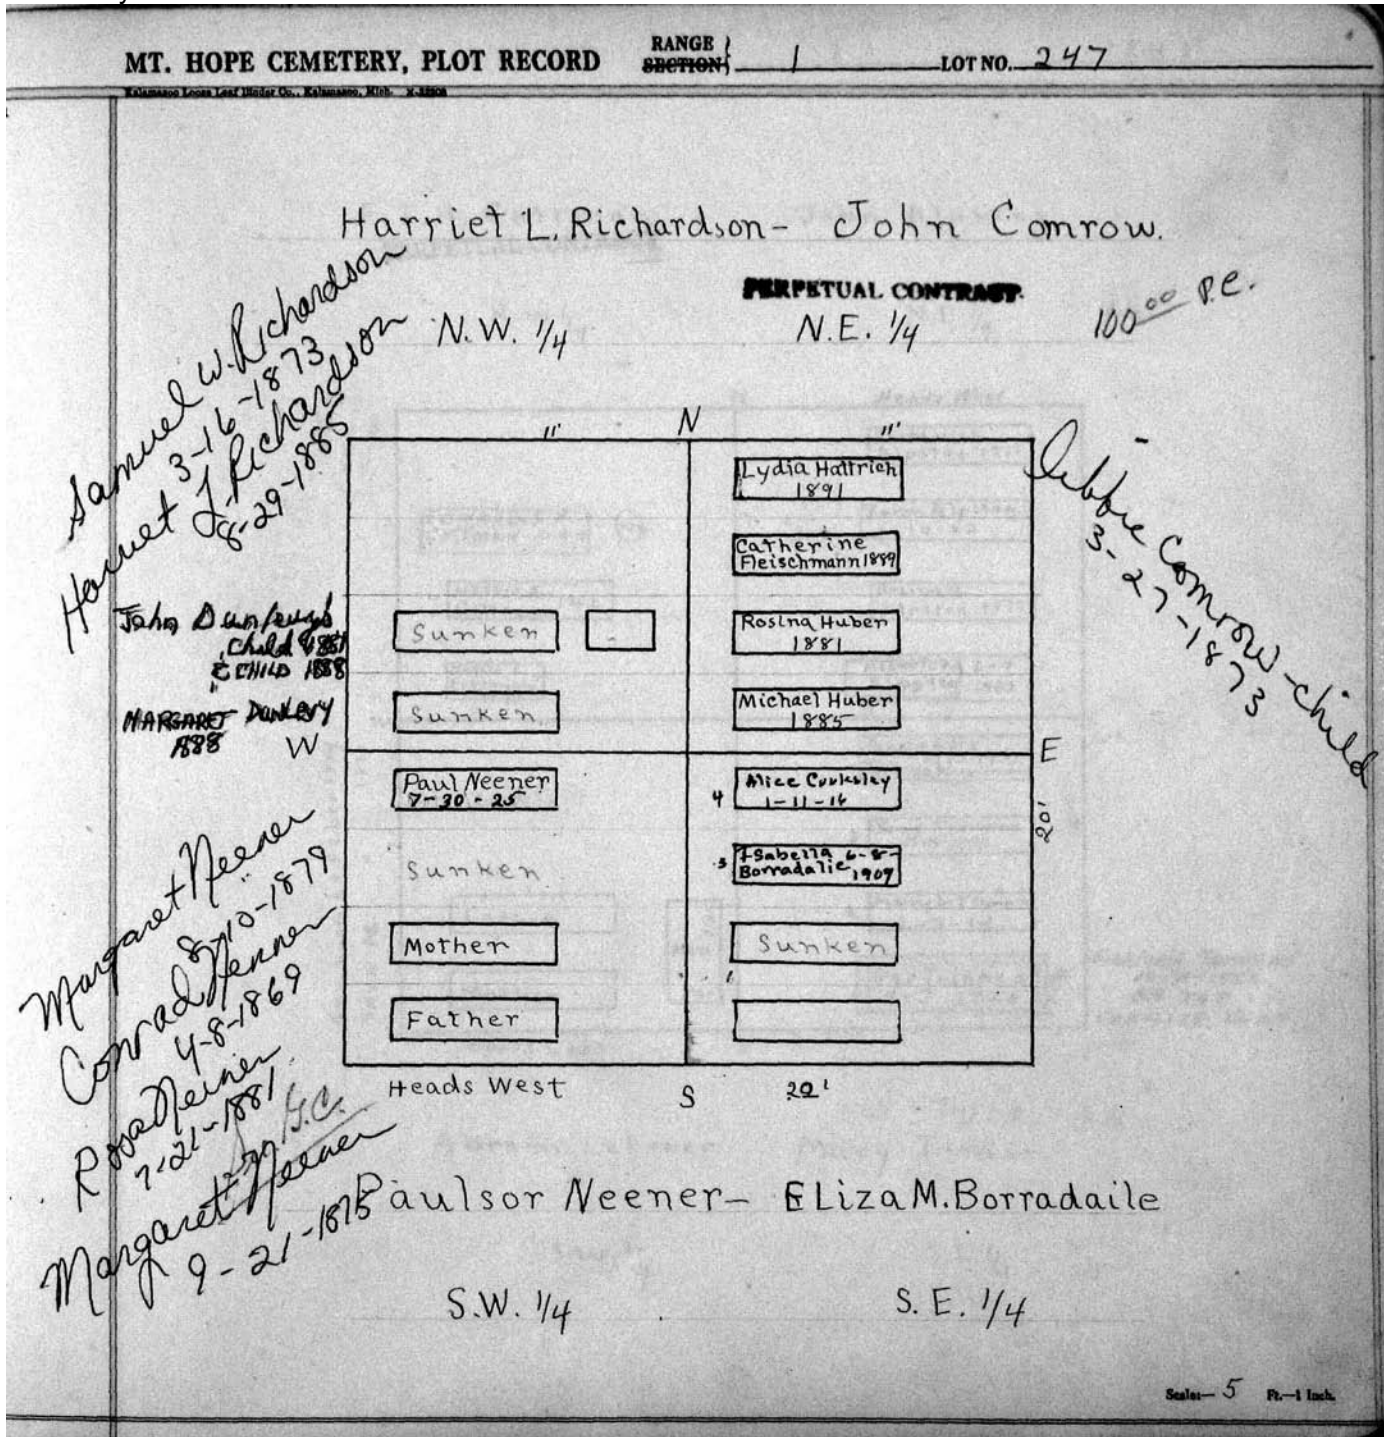 MT. HOPE CEMETERY, PLOT RECORD RANGE SECTION 1 LOT NO. 247
Kalamazoo Loose Leaf Binder Co., Kalamazoo, Mich.
Harriet L. Richardson- John Comrow.
PERPETUAL CONTRACT
100 00 P.C.
N.W. 1/4 N.E. 1/4
Samuel W. Richardson
3-16-1873
Richardson
8-29-1885
John
Child 1881
CHILD 1888
MARGARET
1888
W
N
Lydia Hattrich
1891
Catherine
Fleischmann 1889
Sunken
Rosina Huber
1881
Sunken
Michael Huber
1885
Libbie Comrow-child
3-27-1873
E
20'
Paul Neener
7-30-25
4 Alice Cooksley
1-11-16
Sunken
3 Isabella 6-8-
Borradalie 1909
Mother
Sunken
Father
Margaret Neener
8-10-1879
Conrad Nenner
4-8-1869
Rosa Neiner
7-21-1881
G.C.
Margaret Neener
9-21-1875
Heads West
S
20'
Paulsor Neener- Eliza M. Borradaile
S.W. 1/4 S.E. 1/4
Scale:- 5 Ft.-1 Inch.